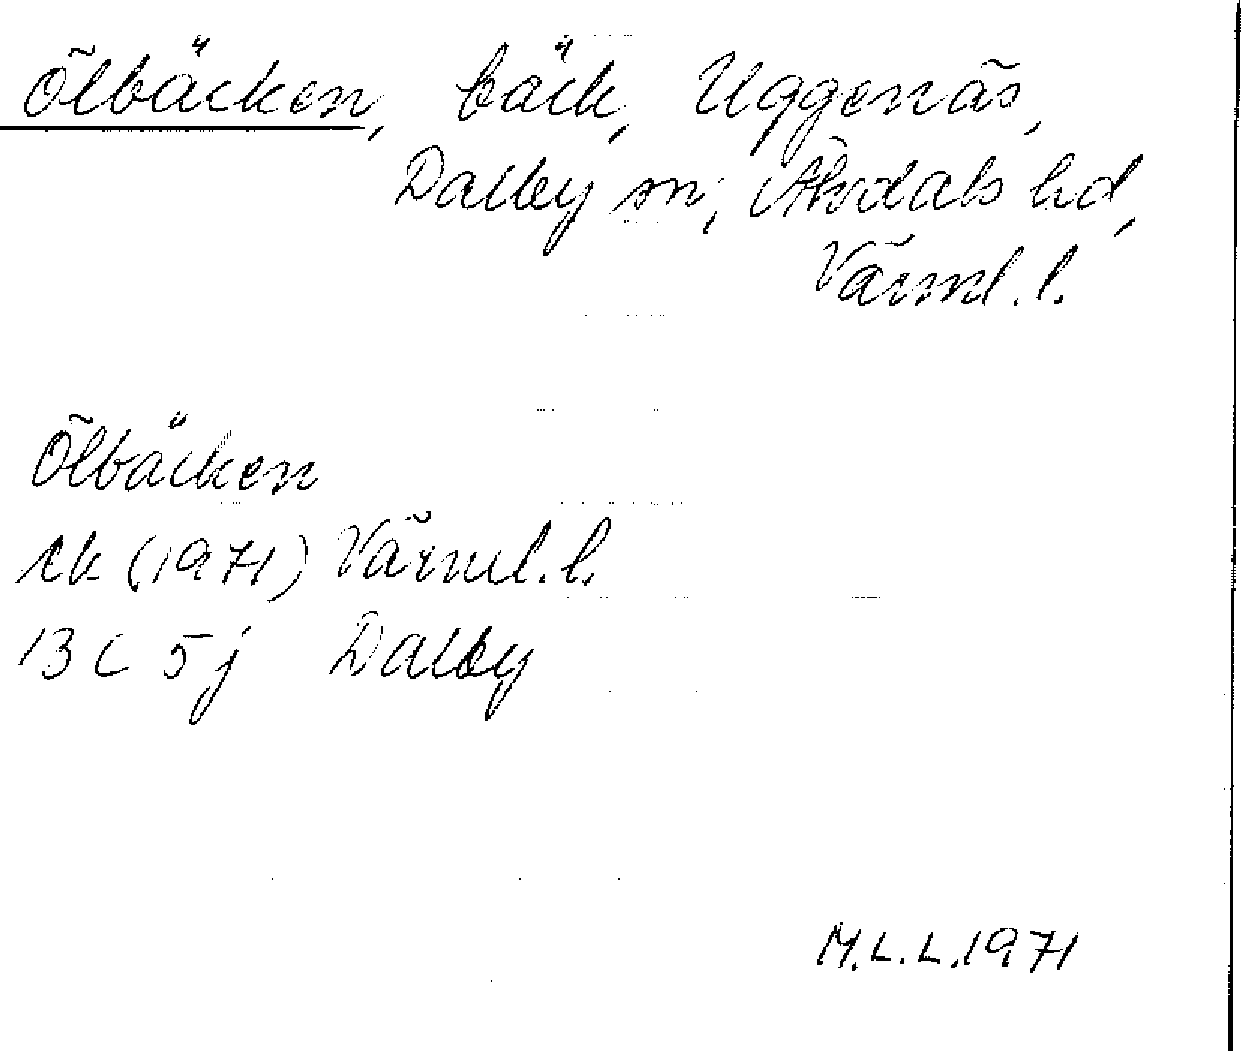 Ölbäcken, bäck, Uggenäs,
Dalby sn, Älvdals hd,
Värml. l.
Ölbäcken
rk (1971) Värml. l.
13 C 5 j Dalby
M.L.L. 1971